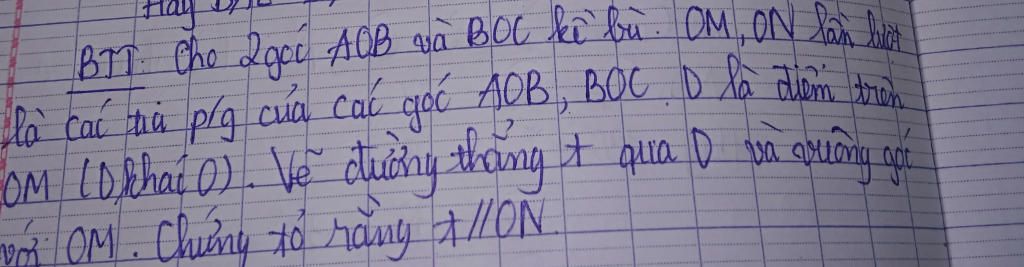 BTT: Cho 2 góc AOB và BOC kề bù. OM, ON lần lượt
là các tia p/g của các góc AOB, BOC. D là điểm trên
OM (D khác O). Vẽ đường thẳng t qua D và vuông góc
với OM. Chứng tỏ rằng t//ON.